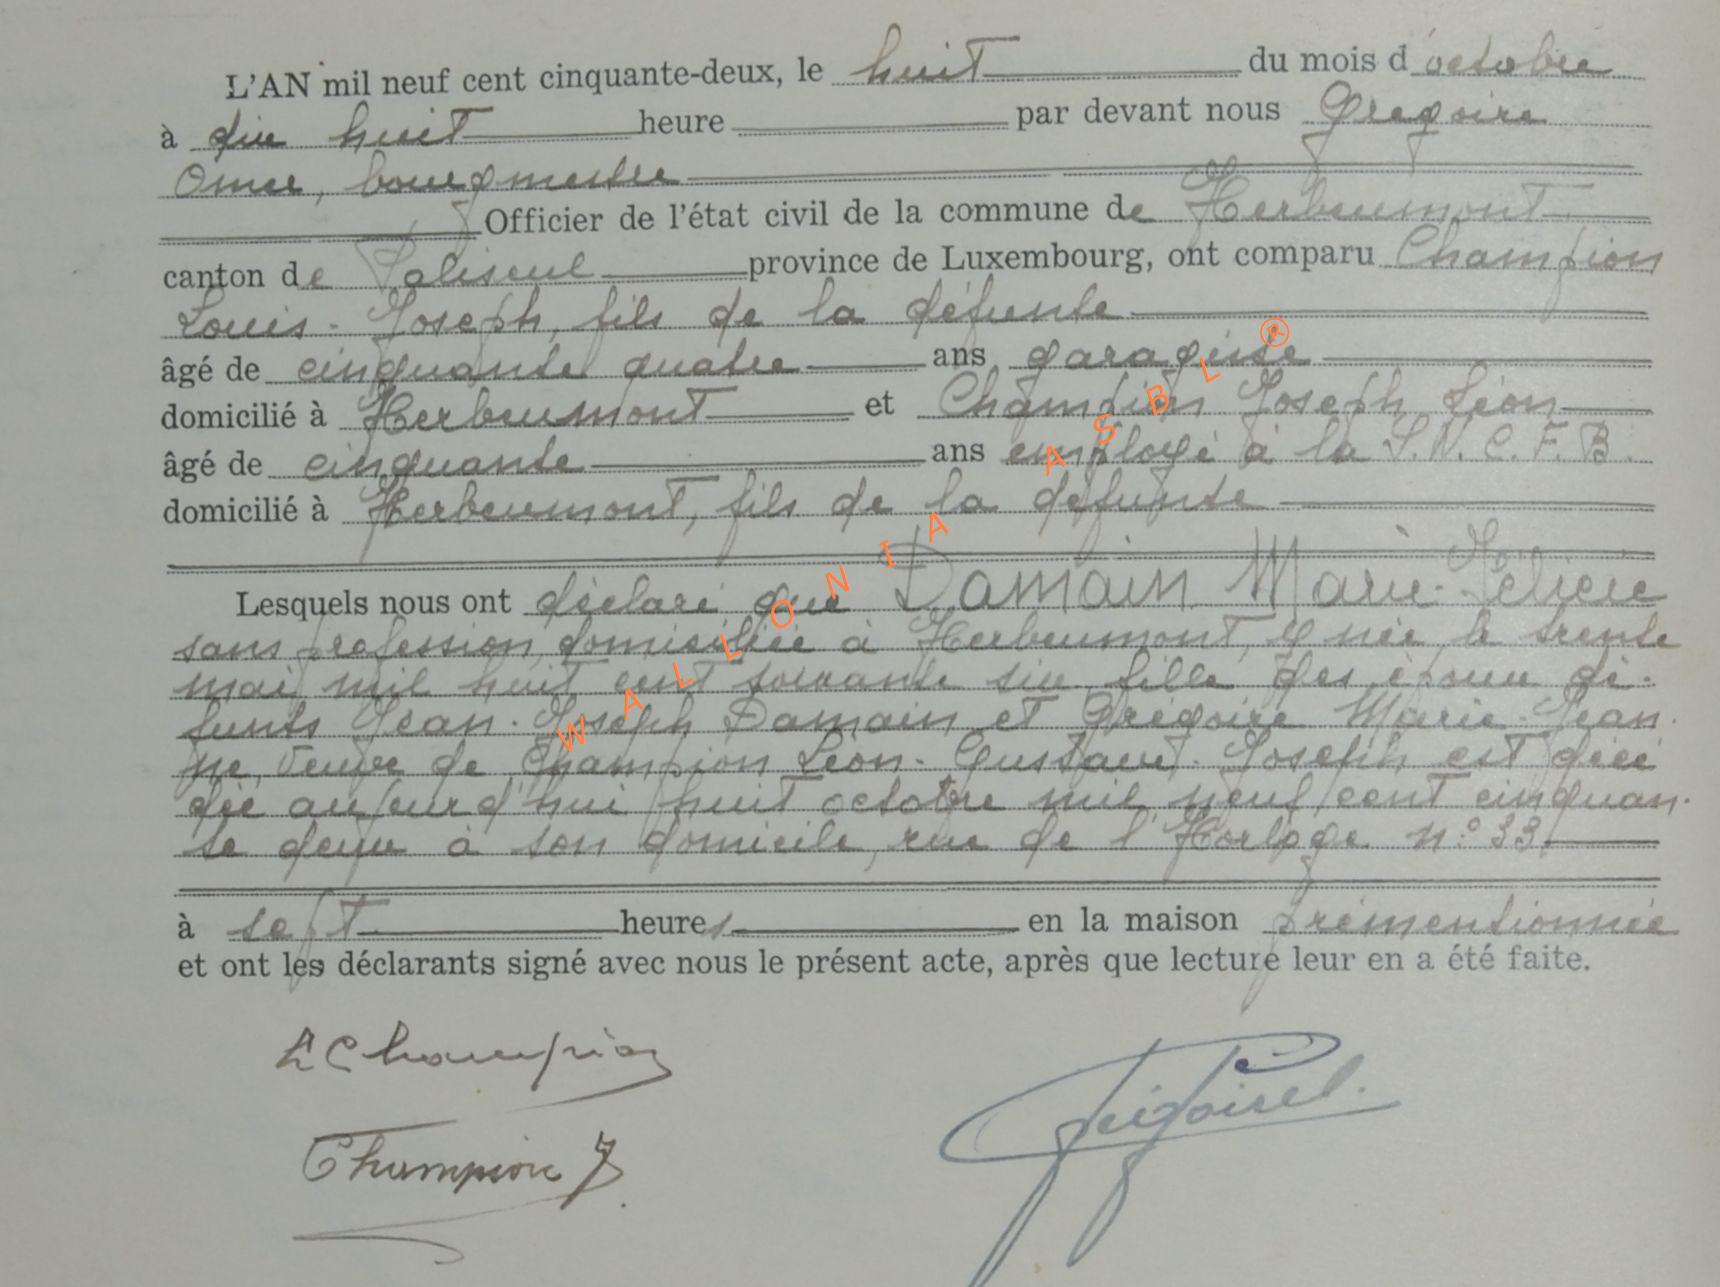 L'AN mil neuf cent cinquante-deux, le huit du mois d'octobre
à dix huit heure par devant nous Gregoire
Omer, bourgmestre
Officier de l'état civil de la commune de Herbeumont
canton de Paliseul province de Luxembourg, ont comparu Champion
Louis-Joseph, fils de la défunte
âgé de cinquante quatre ans garagiste
domicilié à Herbeumont et Champion Joseph Léon
âgé de cinquante ans employé à la S.N.C.F.B.
domicilié à Herbeumont, fils de la défunte
Lesquels nous ont déclaré que Damain Marie-Félicie
sans profession, domiciliée à Herbeumont, y née le trente
mai mil huit cent soixante six, fille des époux dé-
funts Jean-Joseph Damain et Grégoire Marie-Jean
ne, veuve de Champion Léon-Gustave-Joseph est décé
dée aujourd'hui huit octobre mil neuf cent cinquan-
te deux à son domicile, rue de l'Horloge n° 33,
à sept heures en la maison prémentionnée
et ont les déclarants signé avec nous le présent acte, après que lecture leur en a été faite.
L Champion
Champion J
WALLONIA ASBL ®